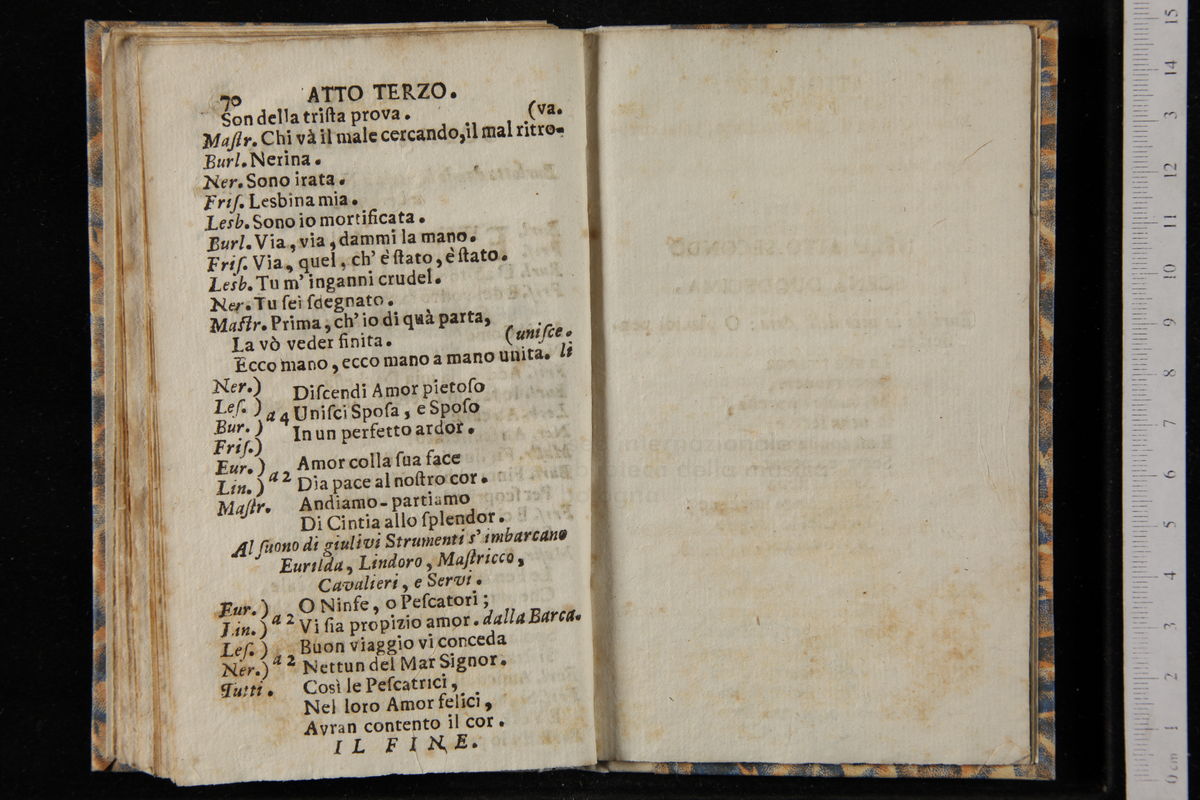 70 ATTO TERZO.
Son della triſta prova. (va.
Maſtr. Chi và il male cercando, il mal ritro-
Burl. Nerina.
Ner. Sono irata.
Friſ. Lesbina mia.
Lesb. Sono io mortificata.
Burl. Via, via, dammi la mano.
Friſ. Via, quel, ch' è ſtato, è ſtato.
Lesb. Tu m' inganni crudel.
Ner. Tu ſei ſdegnato.
Maſtr. Prima, ch' io di quà parta,
La vò veder finita. (uniſce.
Ecco mano, ecco mano a mano unita. li
Ner.) Diſcendi Amor pietoſo
Leſ. ) a 4 Uniſci Spoſa, e Spoſo
Bur. ) In un perfetto ardor.
Friſ.)
Eur. ) a 2 Amor colla ſua face
Lin. ) Dia pace al noſtro cor.
Maſtr. Andiamo - partiamo
Di Cintia allo ſplendor.
Al ſuono di giulivi Strumenti s' imbarcano
Eurilda, Lindoro, Maſtricco,
Cavalieri, e Servi.
Eur. ) a 2 O Ninfe, o Peſcatori;
Lin. ) Vi ſia propizio amor. dalla Barca.
Leſ. ) a 2 Buon viaggio vi conceda
Ner.) Nettun del Mar Signor.
Tutti. Così le Peſcatrici,
Nel loro Amor felici,
Avran contento il cor.
IL FINE.
internazionale
biblioteca della musica
bologna
15
14
13
12
11
10
9
8
7
6
5
4
3
2
1
0 cm